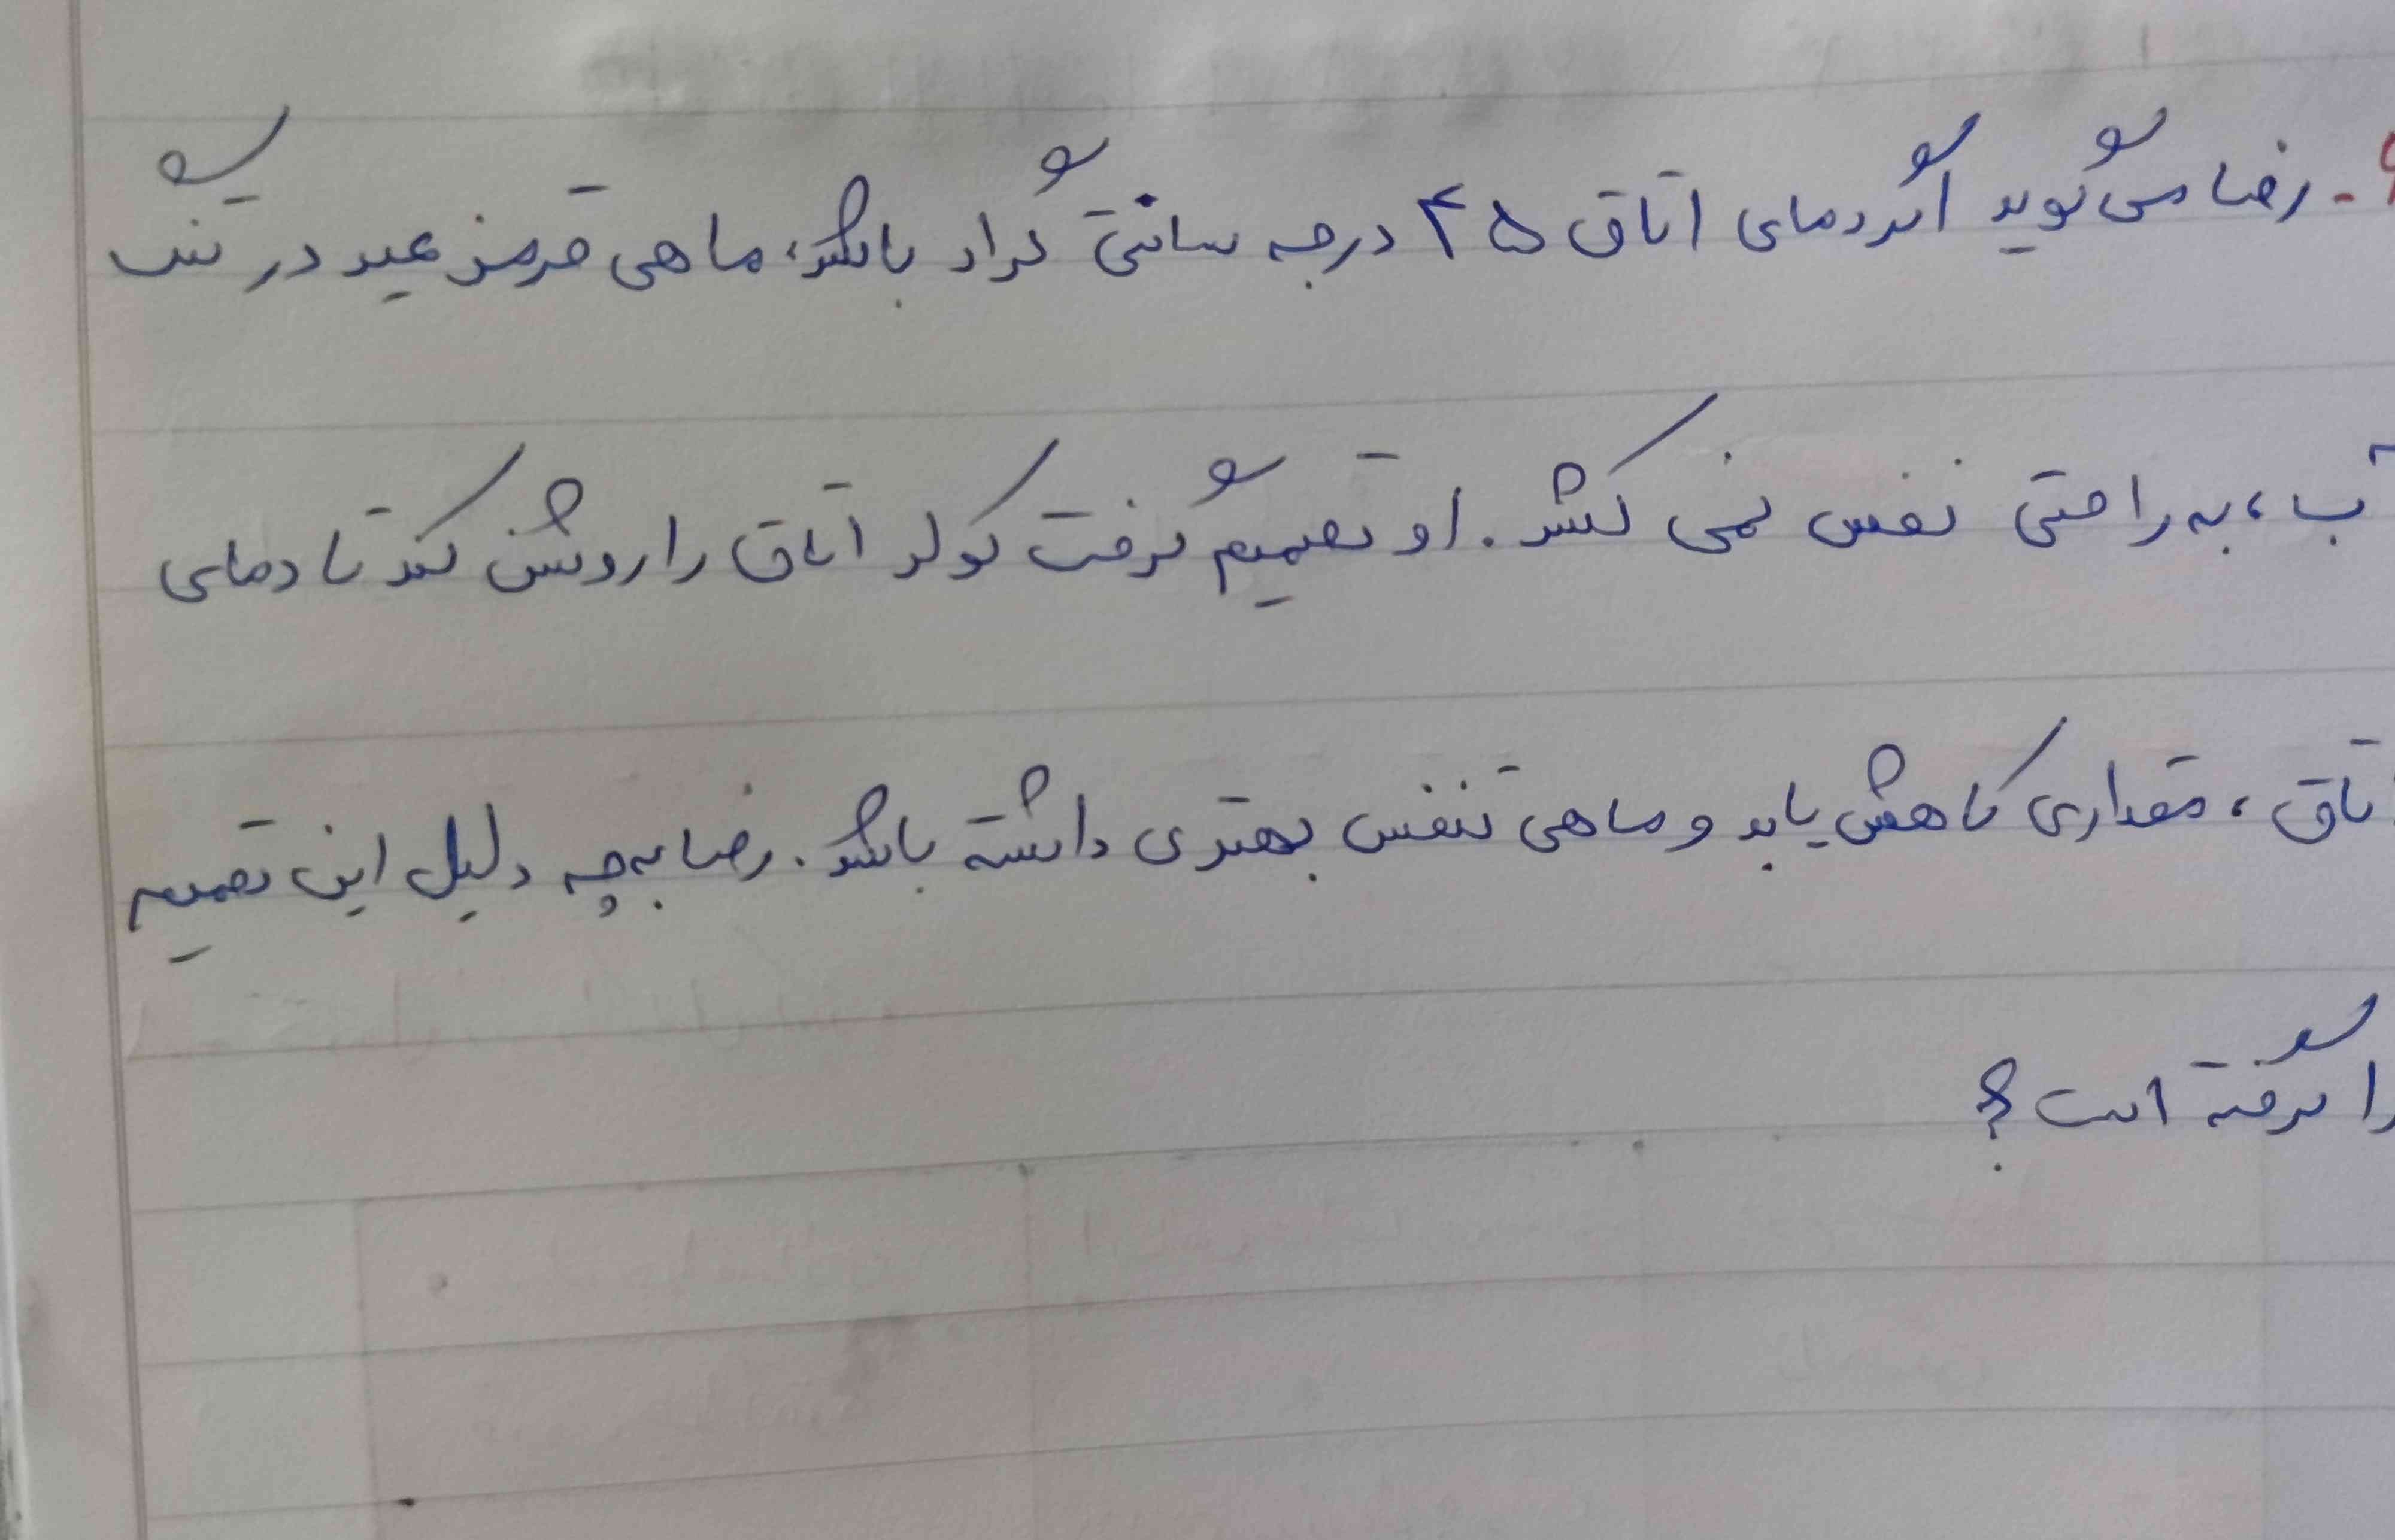 ۹- رضا می گوید اگر دمای اتاق ۴۵ درجه سانتی گراد باشد، ماهی قرمز عید در تنگ
آب، به راحتی نفس نمی کشد. او تصمیم گرفت کولر اتاق را روشن کند تا دمای
اتاق، مقداری کاهش یابد و ماهی تنفس بهتری داشته باشد. رضا به چه دلیل این تصمیم
را گرفته است؟